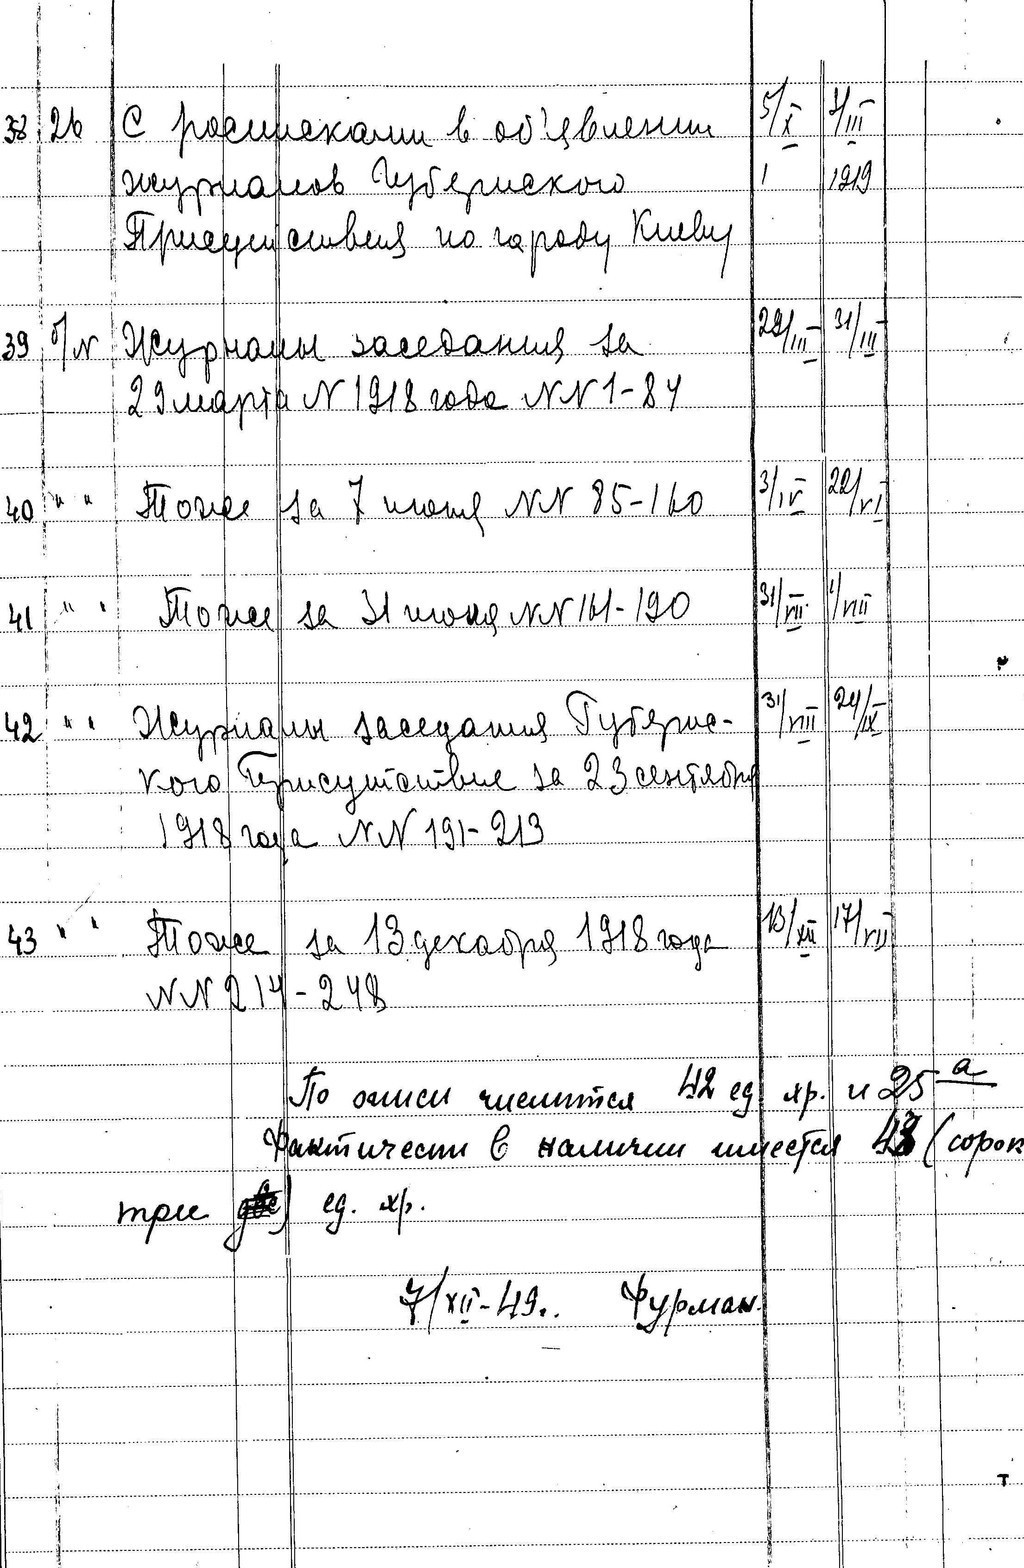 38 26 С росписками в об'явлении 5/X 3/III
журналов Губернского 1 1919
Присутствия по городу Киеву
39 б/N Журналы заседания за 29/III 31/III
29 марта N 1918 года NN 1-84
40 " " Тоже за 7 июня NN 85-160 3/IV 22/VI
41 " " Тоже за 31 июля NN 161-190 31/VII 1/VIII
42 " " Журналы заседания Губернс- 31/VIII 24/IX
кого Присутствие за 23 сентября
1918 года NN 191-213
43 " " Тоже за 13 декабря 1918 года 13/XII 17/VII
NN 214-248
По описи числится 42 ед. хр. и 25 а
Фактически в наличии имеется 43 (сорок
три две) ед. хр.
7/XII-49г. Фурман.